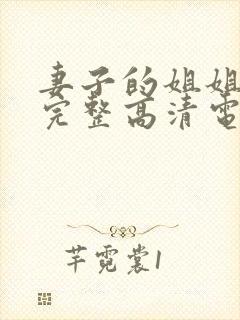 妻子的姐姐
完整高清电
芊霓裳1